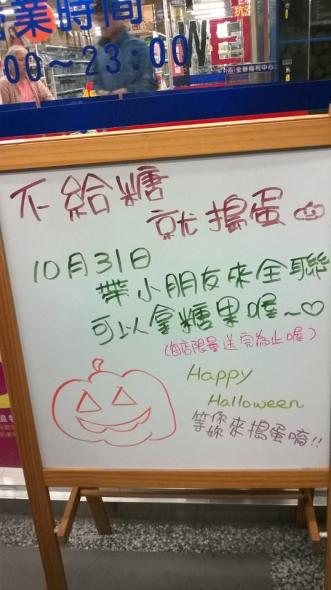 營業時間
00～23:00
全聯福利中心
不給糖
就搗蛋
10月31日
帶小朋友來全聯
可以拿糖果喔~♡
(每店限量送完為止喔)
Happy
Halloween
等你妳來搗蛋唷!!